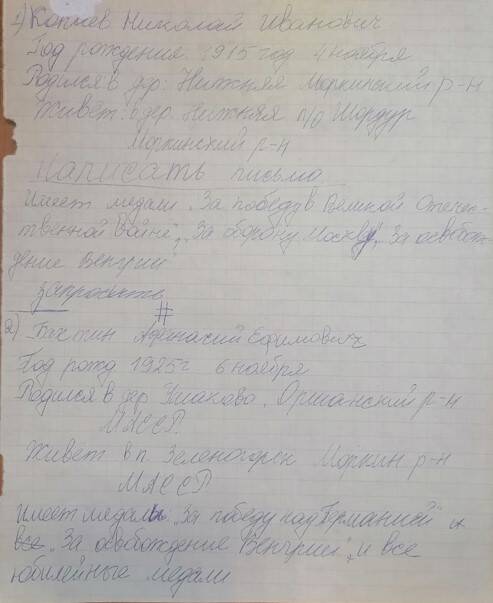 1) Копаев Николай Иванович
Год рождения 1915 год 4 ноября
Родился в дер. Нижняя Моркинский р-н
Живет: в дер. Нижняя п/о Шордур
Моркинский р-н
Написать письмо
Имеет медали „За победу в Великой Отечес-
твенной войне", „За оборону Москвы", „За освобож-
дение Венгрии"
запросить
#
2) Бахтин Афанасий Ефимович
Год рожд 1925 г 6 ноября
Родился в дер Ушаково, Оршанский р-н
МАССР
Живет в п. Зеленогорск Моркин р-н
МАССР
Имеет медалы „За победу над Германией" и
все „За освобождение Венгрии", и все
юбилейные медали